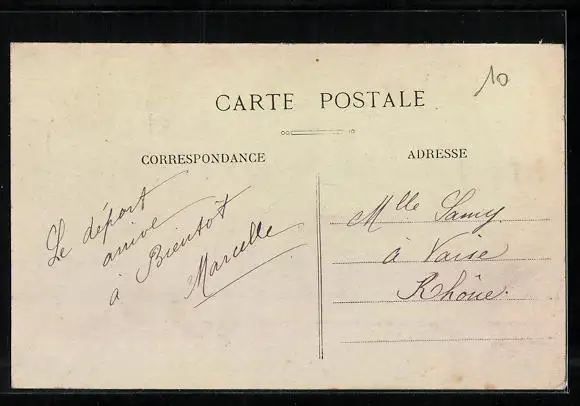 10
CARTE POSTALE
CORRESPONDANCE
Le départ
arrive
à Bientôt
Marcelle
ADRESSE
Mlle Samy
à Vaise
Rhône.